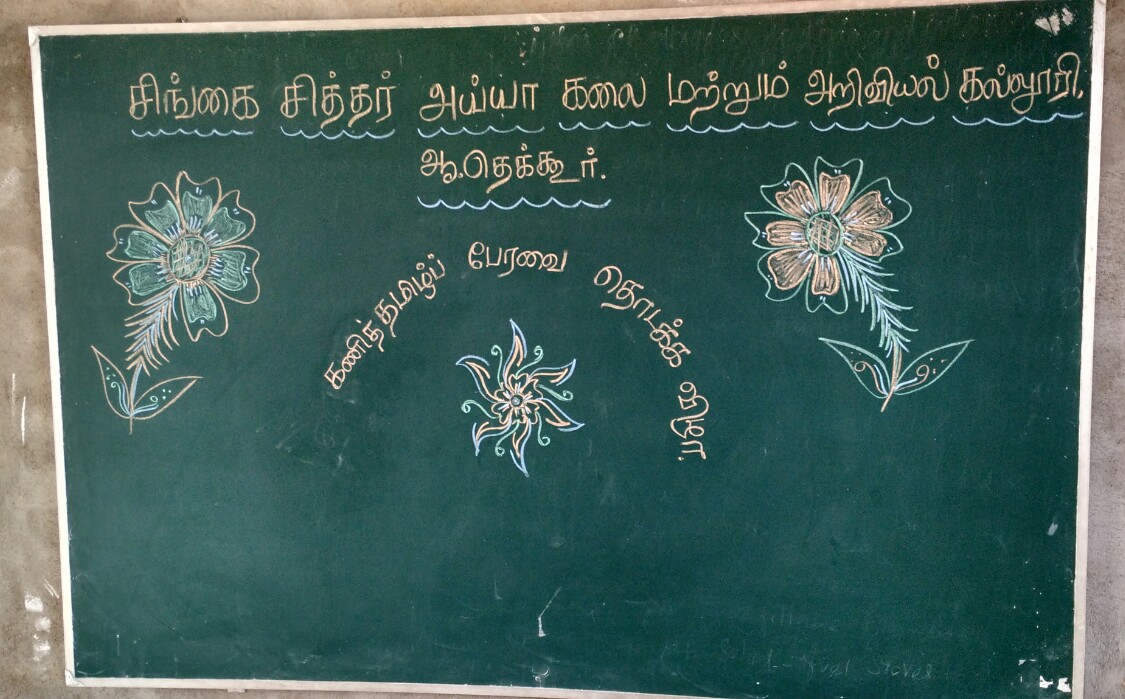 சிங்கை சித்தர் அய்யா கலை மற்றும் அறிவியல் கல்லூரி,
ஆ.தெக்கூர்.
கணித்தமிழ்ப் பேரவை தொடக்க விழா.